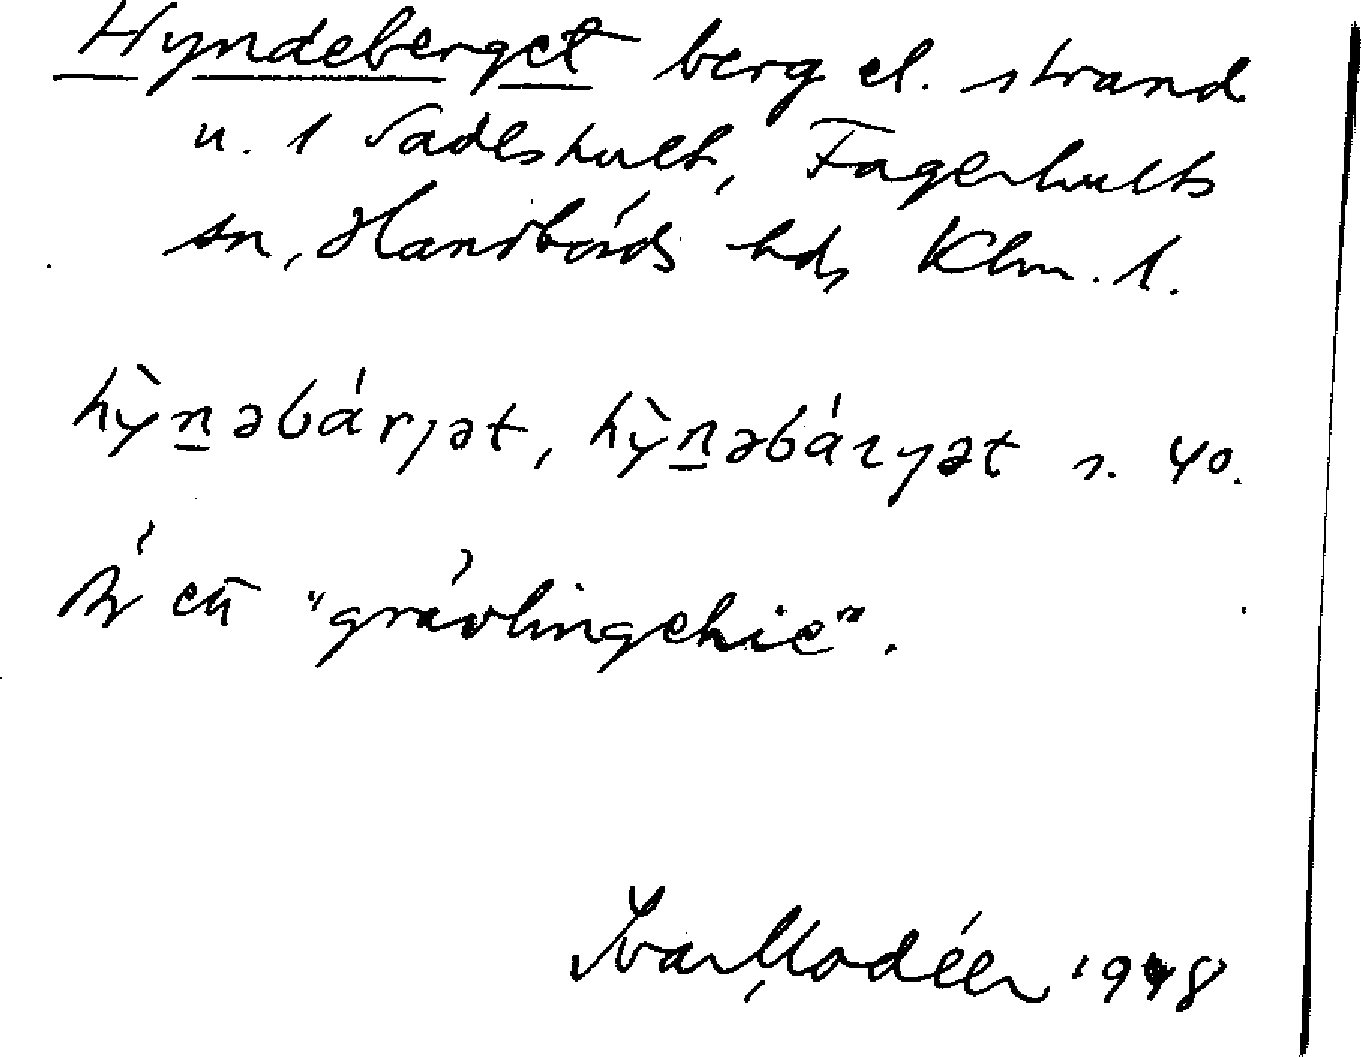 Hyndeberget berg el. strand
u. 1 Sadeshult, Fagerhults
sn, Handbörds hds Klm. l.
hỳn̲əbárjət, hỳn̲əbáryət s. 40.
Är ett "grävlingehie".
Ivar Modéer 1948